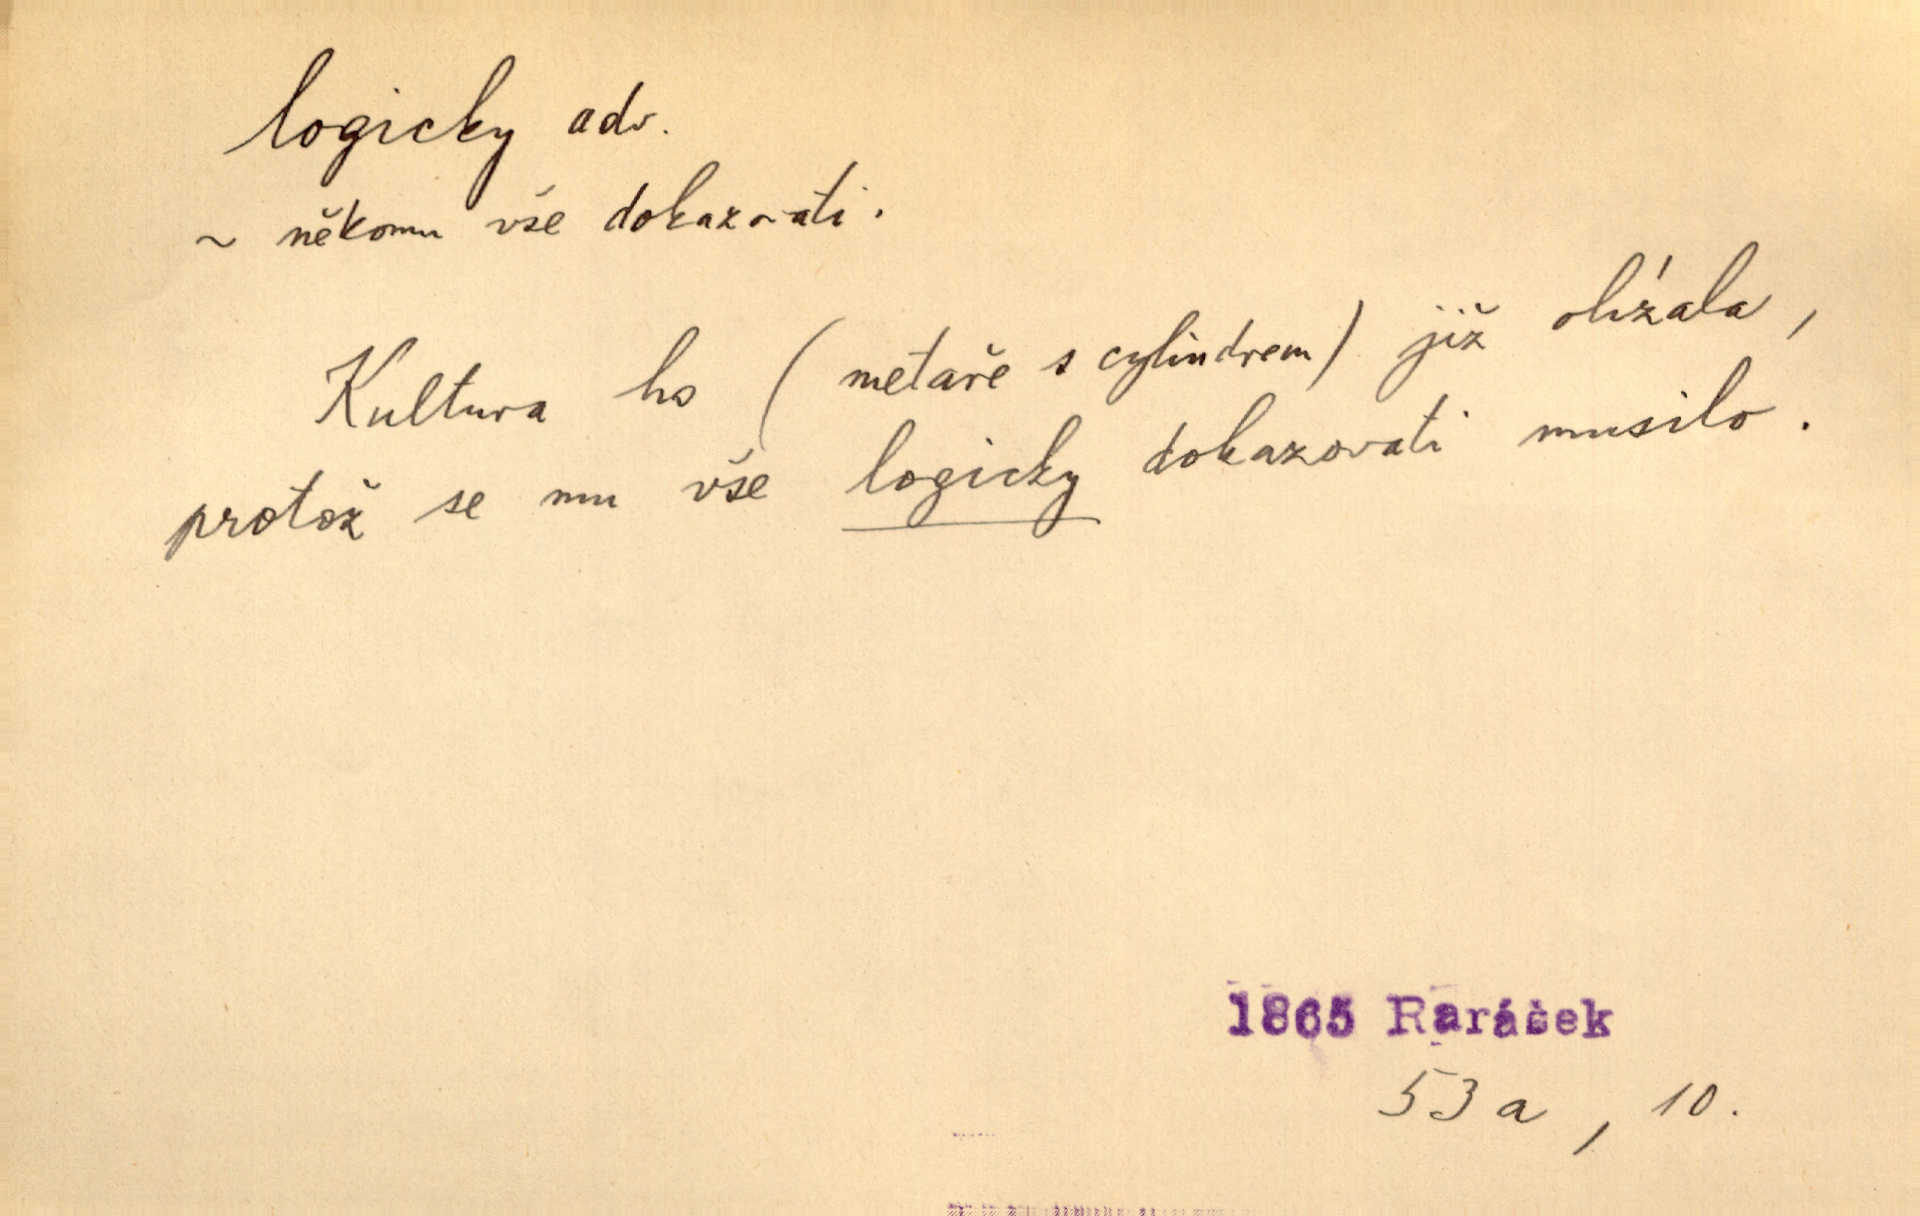 logicky adv.
~ někomu vše dokazovati.
Kultura ho (metaře s cylindrem) již olízala,
protož se mu vše logicky dokazovati musilo.
1865 Rarášek
53a, 10.